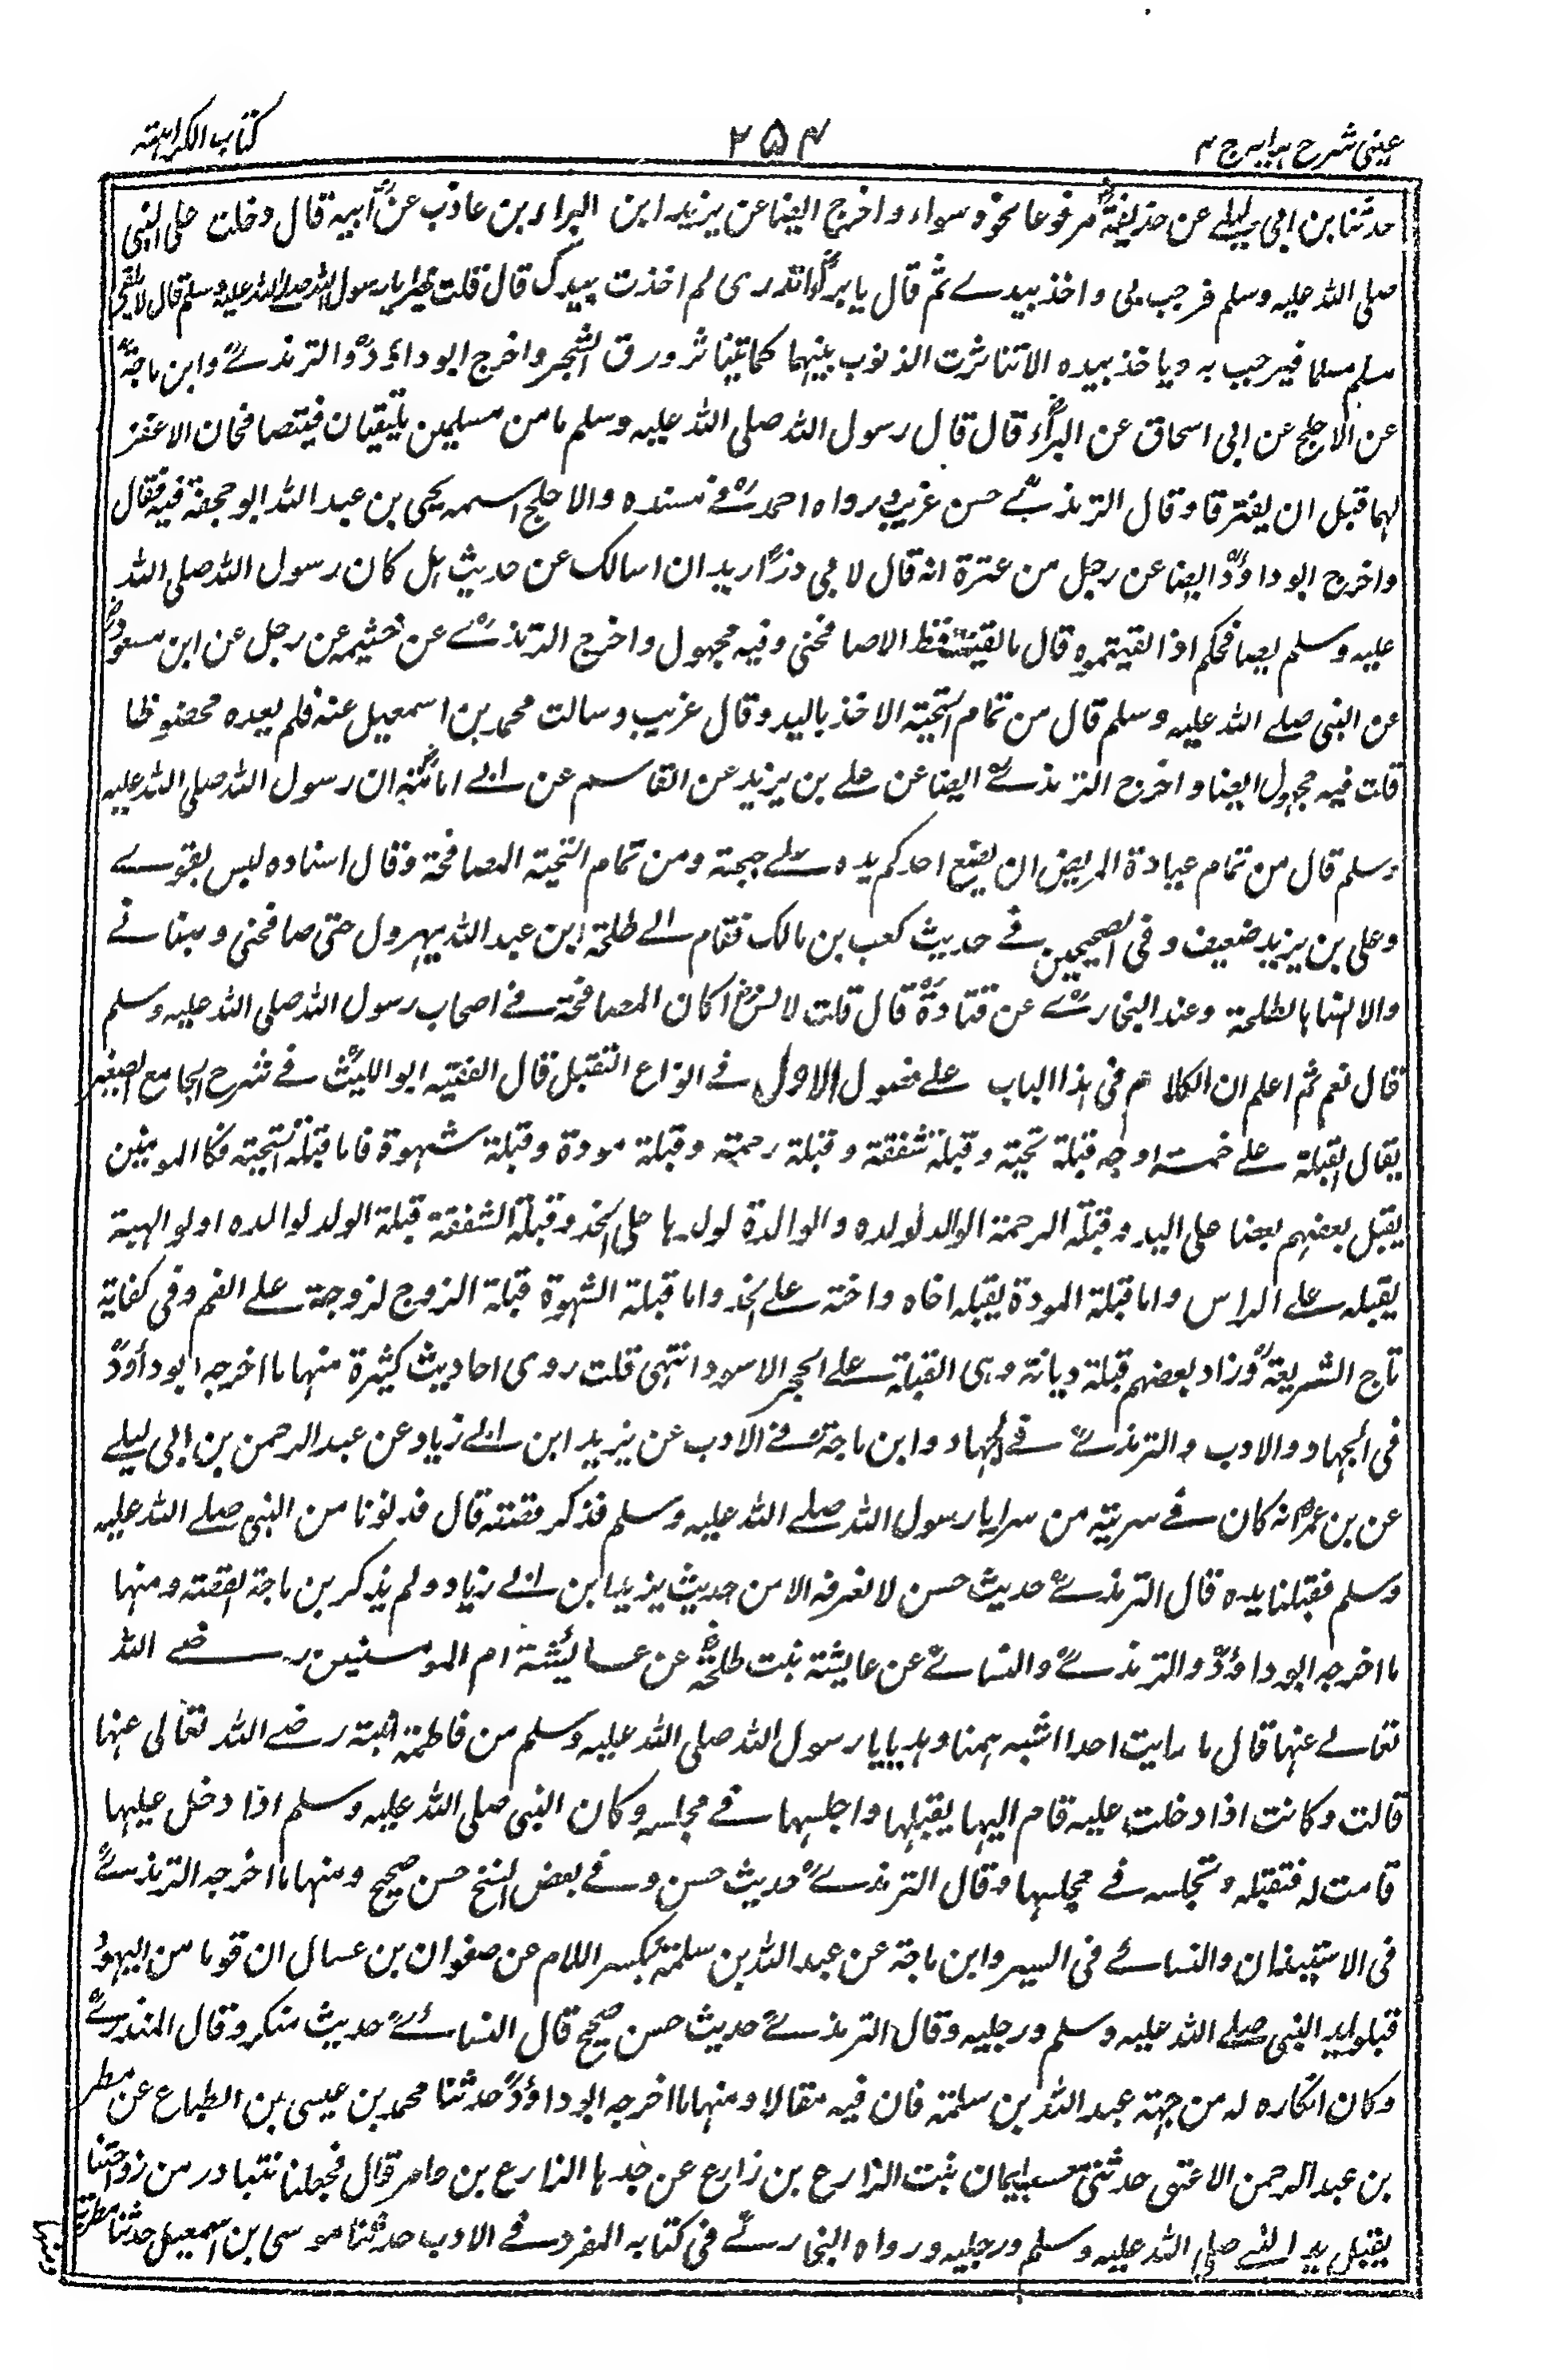 عینی شرح ہدایہ ج ۴
۲۵۴
کتاب الکراہتہ
حدثنا بن ابی لیلے عن حذیفة مرفوعا نحوہ سواء واخرج ایضا عن یزید ابن البراء بن عاذب عن ابیہ قال دخلت علی النبی
صلی اللہ علیہ وسلم فرحب بی واخذ بیدے ثم قال یا براء اتدری لم اخذت بیدک قال قلت خیرا یا رسول اللہ صلے اللہ علیہ وسلم قال لا یلقی
مسلم مسلما فیرحب بہ ویاخذ بیدہ الا تناثرت الذنوب بینہما کما یتناثر ورق الشجر واخرج ابو داؤد والترمذے وابن ماجة
عن الاجلح عن ابی اسحاق عن البراء قال قال رسول اللہ صلی اللہ علیہ وسلم ما من مسلمین یلتقیان فیتصافحان الا غفر
لہما قبل ان یفترقا وقال الترمذے حسن غریب ورواہ احمد فے مسندہ والاجلح اسمہ یحیی بن عبد اللہ ابو حجفة فیہ مقال
واخرج ابو داؤد ایضا عن رجل من عنزة انہ قال لابی ذر ارید ان اسالک عن حدیث ہل کان رسول اللہ صلی اللہ
علیہ وسلم یصافحکم اذا لقیتموہ قال ما لقیتہ قط الا صافحنی وفیہ مجہول واخرج الترمذے عن خثیمہ عن رجل عن ابن مسعود
عن النبی صلے اللہ علیہ وسلم قال من تمام التحیة الاخذ بالید وقال غریب وسالت محمد بن اسمعیل عنہ فلم یعدہ محفوظا
قلت فیہ مجہول ایضا واخرج الترمذے ایضا عن علے بن یزید عن القاسم عن ابے امامة ان رسول اللہ صلی اللہ علیہ
وسلم قال من تمام عیادة المریض ان یضع احدکم یدہ علے جبہتہ ومن تمام التحیة المصافحة وقال اسنادہ لیس بقوے
وعلی بن یزید ضعیف وفی الصحیحین فے حدیث کعب بن مالک فقام الے طلحة ابن عبد اللہ یہرول حتی صافحنی وہنانے
ولا انساہا لطلحة وعند البخارے عن قتادة قال قلت لانس اکانت المصافحة فے اصحاب رسول اللہ صلی اللہ علیہ وسلم
قال نعم ثم اعلم ان الکلام فی ہذا الباب علے فصول الاول فے انواع التقبیل قال الفقیہ ابو اللیث فے شرح الجامع الصغیر
یقال القبلة علے خمسة اوجہ قبلة تحیة وقبلة شفقة وقبلة رحمة وقبلة مودة وقبلة شہوة فاما قبلة التحیة فکالمومنین
یقبل بعضہم بعضا علی الید وقبلة الرحمة الوالد لولدہ والوالدة لولدہا علی الخد وقبلة الشفقة قبلة الولد لوالدہ او لوالدیہ
یقبلہ علے الراس واما قبلة المودة یقبلہ اخاہ واختہ علے الخد واما قبلة الشہوة قبلة الزوج لزوجتہ علے الفم وفی کفایة
تاج الشریعة وزاد بعضہم قبلة دیانة وہی القبلة علے الحجر الاسود انتہی قلت روی احادیث کثیرة منہا ما اخرجہ ابو داؤد
فی الجہاد والادب والترمذے فے الجہاد وابن ماجة فے الادب عن یزید ابن ابے زیاد عن عبد الرحمن بن ابی لیلے
عن بن عمر انہ کان فے سریة من سرایا رسول اللہ صلے اللہ علیہ وسلم فذکر قصتہ قال فدنونا من النبی صلے اللہ علیہ
وسلم فقبلنا یدہ قال الترمذے حدیث حسن لا نعرفہ الا من حدیث یزید ابن ابے زیاد ولم یذکر بن ماجة القصة ومنہا
ما اخرجہ ابو داؤد والترمذے والنسائے عن عایشة بنت طلحة عن عایشة ام المومنین رضے اللہ
تعالے عنہا قال ما رایت احدا اشبہ سمتا وہدیا یا رسول اللہ صلی اللہ علیہ وسلم من فاطمة ابنتہ رضے اللہ تعالی عنہا
قالت وکانت اذا دخلت علیہ قام الیہا یقبلہا واجلسہا فے مجلسہ وکان النبی صلی اللہ علیہ وسلم اذا دخل علیہا
قامت لہ فتقبلہ وتجلسہ فے مجلسہا وقال الترمذے حدیث حسن وفے بعض النسخ حسن صحیح ومنہا ما اخرجہ الترمذے
فی الاستیذان والنسائے فی السیر وابن ماجة عن عبد اللہ بن سلمة بکسر اللام عن صفوان بن عسال ان قوما من الیہود
قبلوا ید النبی صلے اللہ علیہ وسلم ورجلیہ وقال الترمذے حدیث حسن صحیح قال النسائے حدیث منکر وقال المنذرے
وکان انکارہ لہ من جہة عبد اللہ بن سلمة فان فیہ مقالا ومنہا ما اخرجہ ابو داؤد حدثنا محمد بن عیسی بن الطباع عن مطر
بن عبد الرحمن الاعتق حدثتنی ام ابان بنت الزارع بن زارع عن جدہا الزارع بن عامر قال فجعلنا نتبادر من رواحلنا
یقبل ید النبے صلی اللہ علیہ وسلم ورجلیہ ورواہ البخارے فی کتابہ المفرد فے الادب حدثنا موسی بن اسمعیل حدثنا مطر